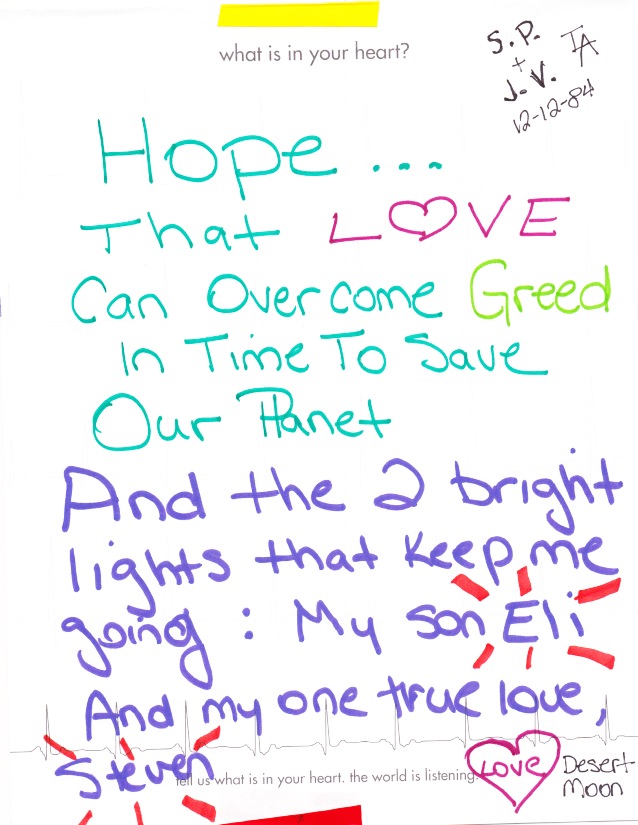 what is in your heart?
S.P. TA
+
J.V.
12-12-84
Hope...
That LOVE
Can Overcome Greed
In Time To Save
Our Planet
And the 2 bright
lights that keep me
going : My son Eli
And my one true love,
Steven
tell us what is in your heart. the world is listening.
LOVE
Desert
Moon